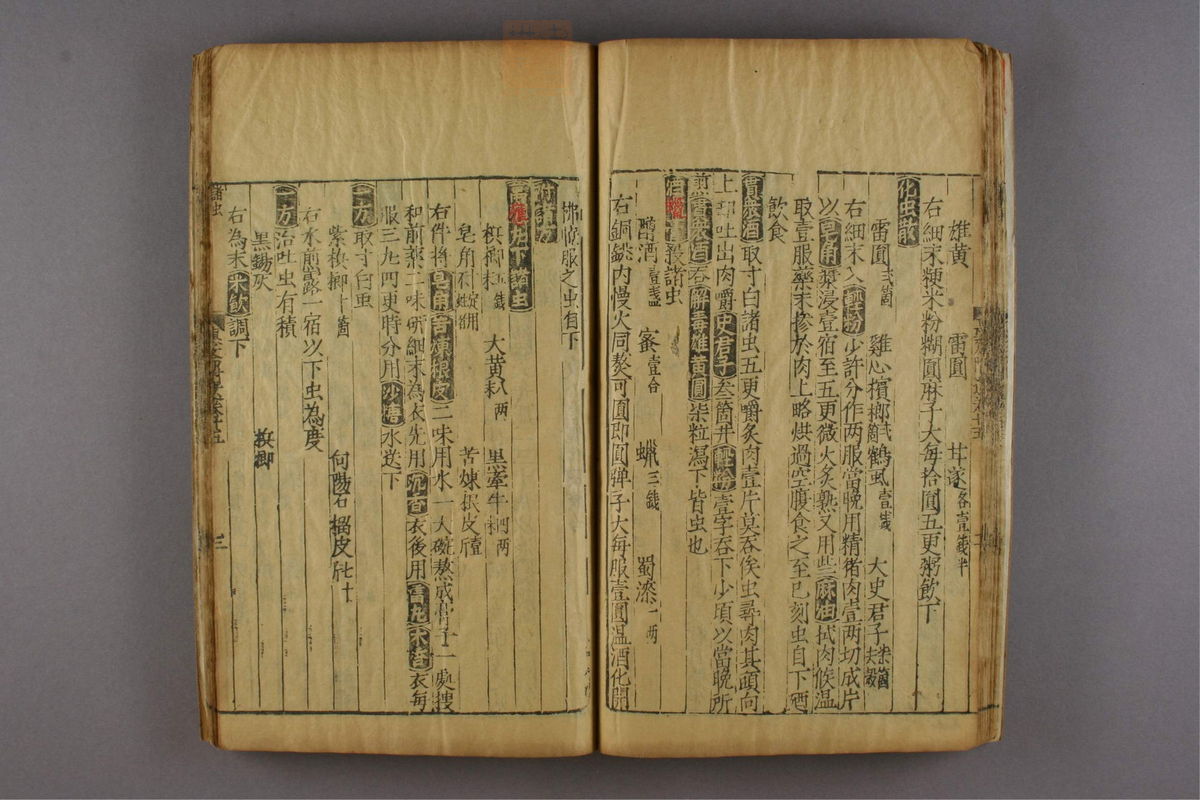 雄黄 雷圓 甘遂各壹錢半
右細末粳米粉糊圓麻子大每拾圓五更粥飲下
化虫散
雷圓弍箇 雞心檳榔弍箇 鶴虱壹錢 大史君子柒箇去殼
右細末入輕粉少許分作两服當晚用精猪肉壹两切成片
以皂角漿浸壹宿至五更微火炙熟又用些麻油拭肉候温
取壹服藥末摻於肉上略烘過空腹食之至巳刻虫自下廼
飲食
貫衆酒取寸白諸虫五更嚼炙肉壹片莫吞俟虫尋肉其頭向
上即吐出肉嚼史君子叁箇并輕粉壹字吞下少頃以當晚所
煎貫衆酒吞解毒雄黄圓柒粒瀉下皆虫也
酒蠟膏殺諸虫
醇酒壹盞 蜜壹合 蠟三錢 蜀漆一两
右銅銚内慢火同熬可圓即圓彈子大每服壹圓温酒化開
怫悗服之虫自下
附諸方
丸下諸虫
檳榔末五錢 大黄末八两 黒牽牛末四两
皂角 苦煉根皮斤壹
右件将皂角苦煉根皮二味用水一大碗熬成膏子一處搜
和前藥二味研細末為衣先用沉香衣後用雷丸木香衣每
服三九四更時分用沙糖水送下
一方取寸白虫
紫檳榔十箇 向陽石榴皮七斤
右水煎露一宿以下虫為度
一方治吐虫有積
黒錫灰 檳榔
右為末米飲調下
諸虫
三